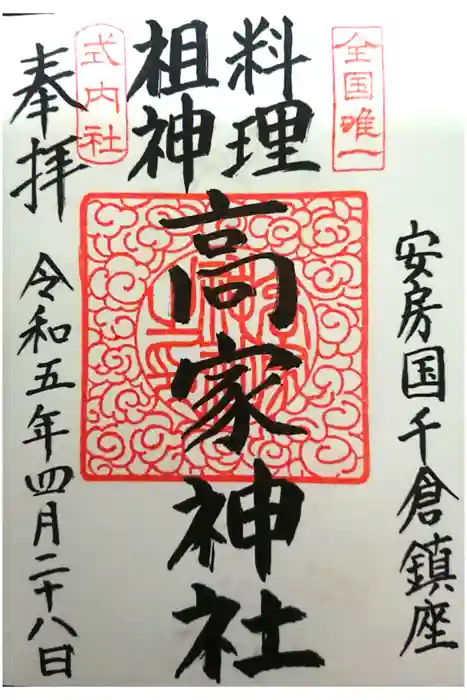 全国唯一
安房国千倉鎮座
料理
祖神
高家神社
式内社
奉拝
令和五年四月二十八日